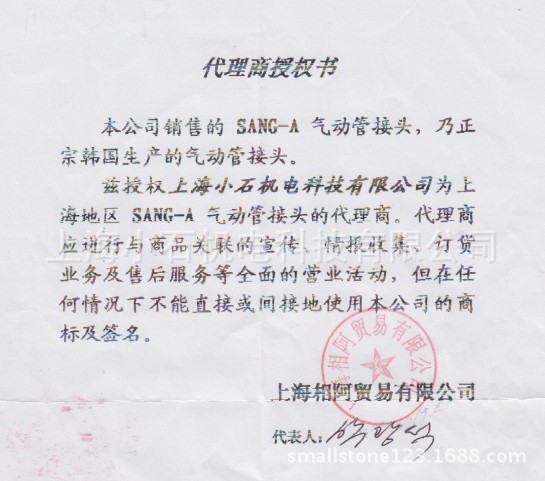 代理商授权书
本公司销售的 SANG-A 气动管接头，乃正
宗韩国生产的气动管接头。
兹授权上海小石机电科技有限公司为上
海地区 SANG-A 气动管接头的代理商。代理商
应进行与商品关联的宣传、情报收集、订货
业务及售后服务等全面的营业活动，但在任
何情况下不能直接或间接地使用本公司的商
标及签名。
上海小石机电科技有限公司
上海相阿贸易有限公司
上海相阿贸易有限公司
代表人：
smallstone123.1688.com